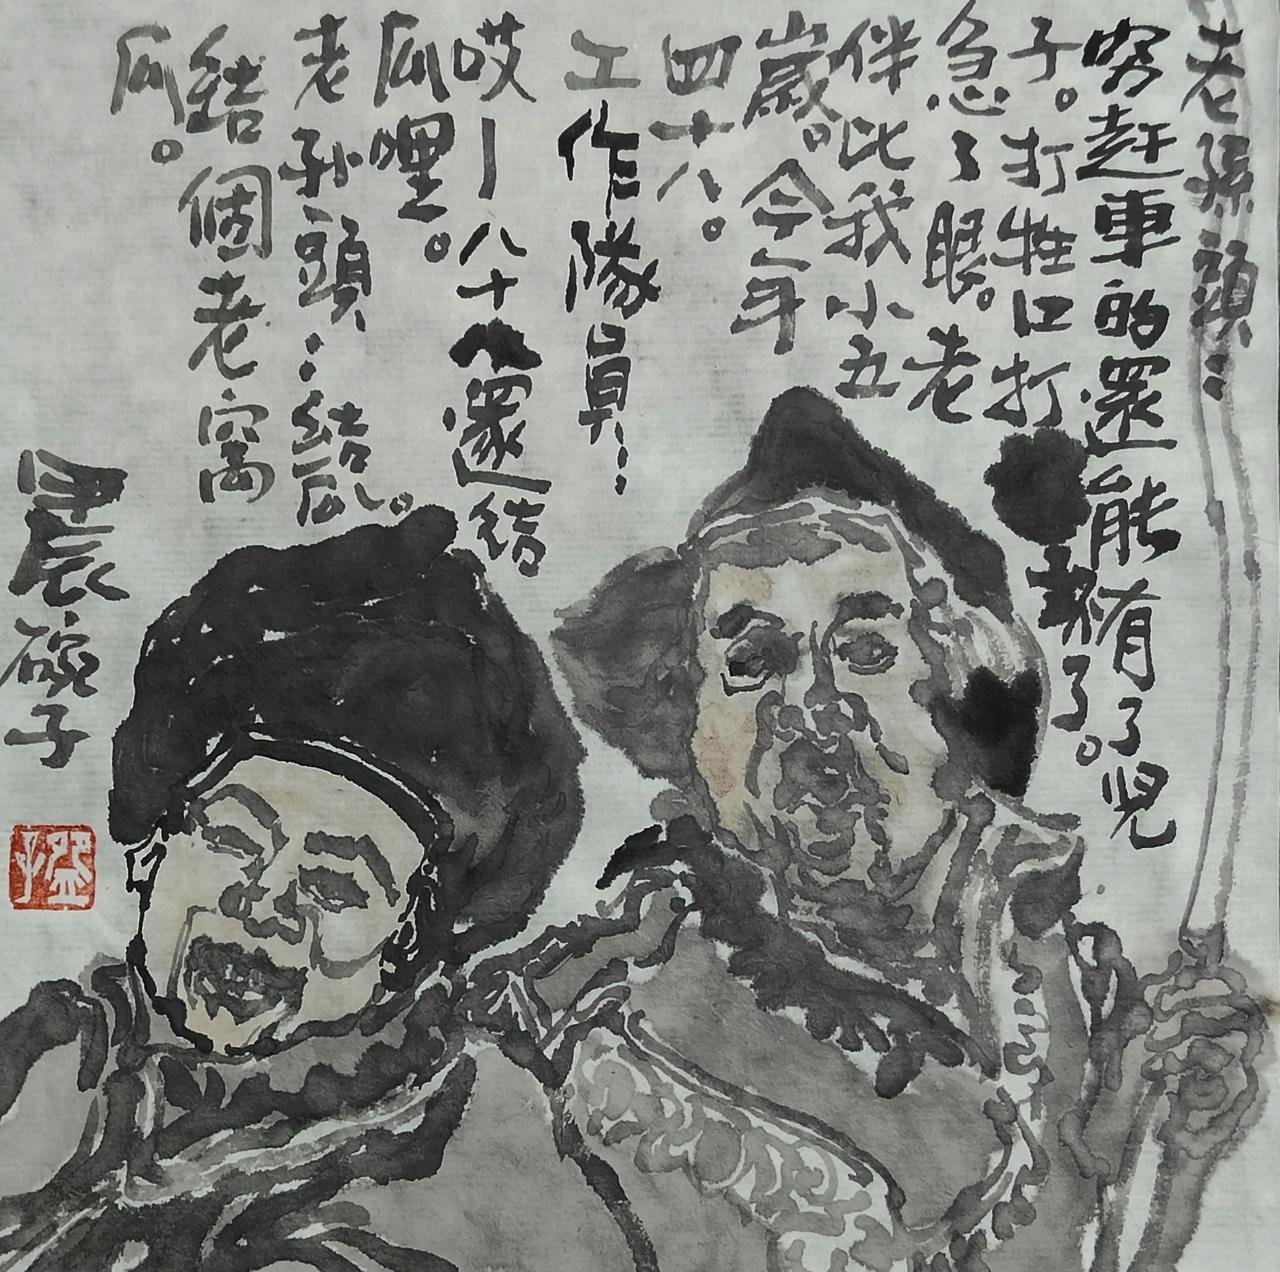 老孫頭：
穷赶車的還能有了兒
子。打牲口打了。
急了眼。老
伴比我小五
歲。今年
四十八。
工作隊員：
哎—八十還結
瓜哩。
老孙頭：結瓜。
結個老窩
瓜。
晨碗子